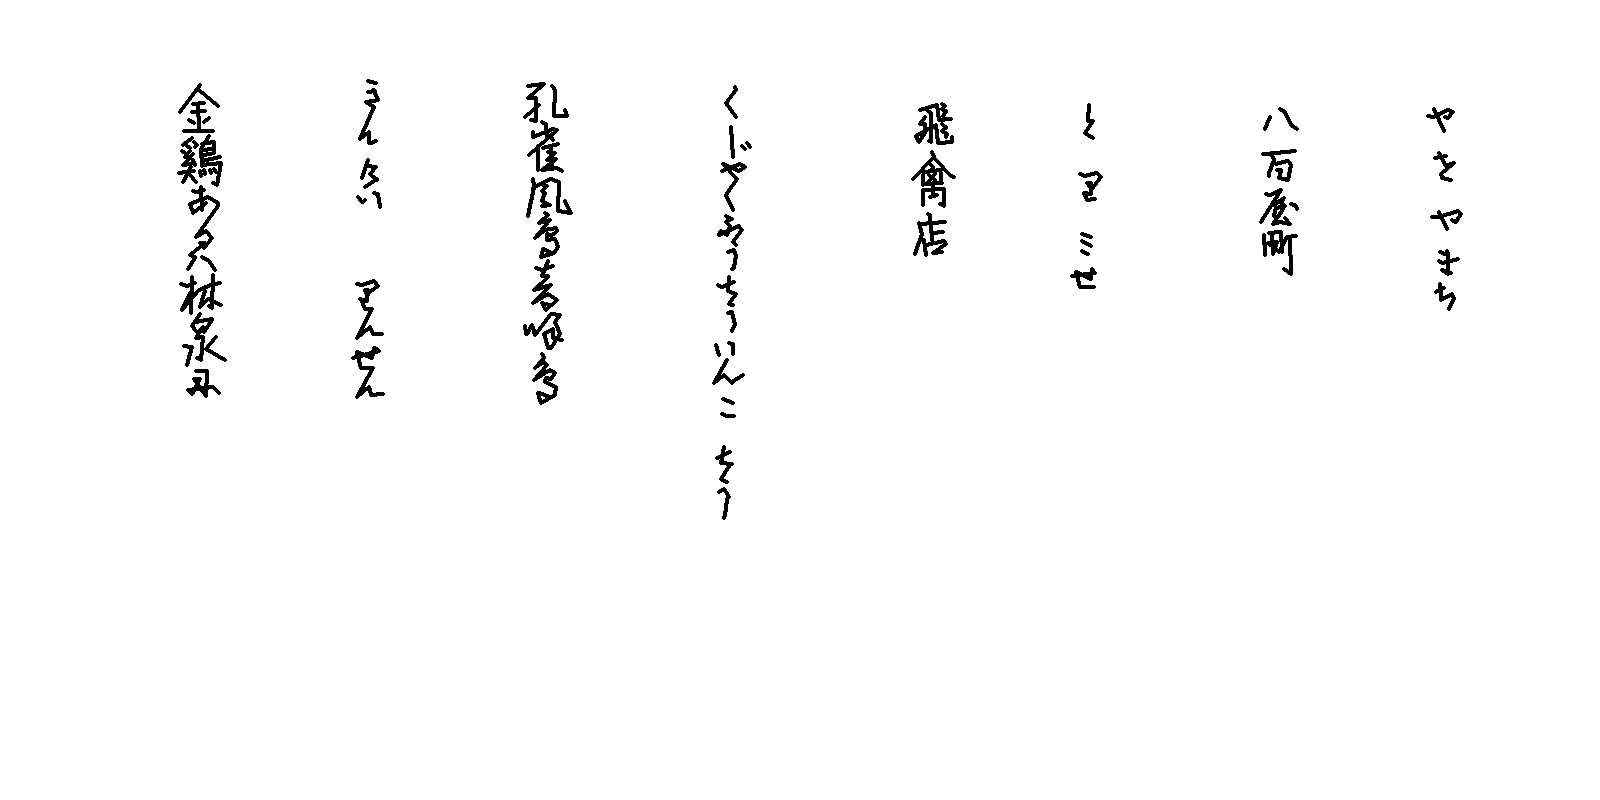 やをやまち
八百屋町
とりミせ
飛禽店
くじやくふうちういんこちう
孔雀風鳥音呼鳥
きんけい りんせん
金鶏あタハ林泉